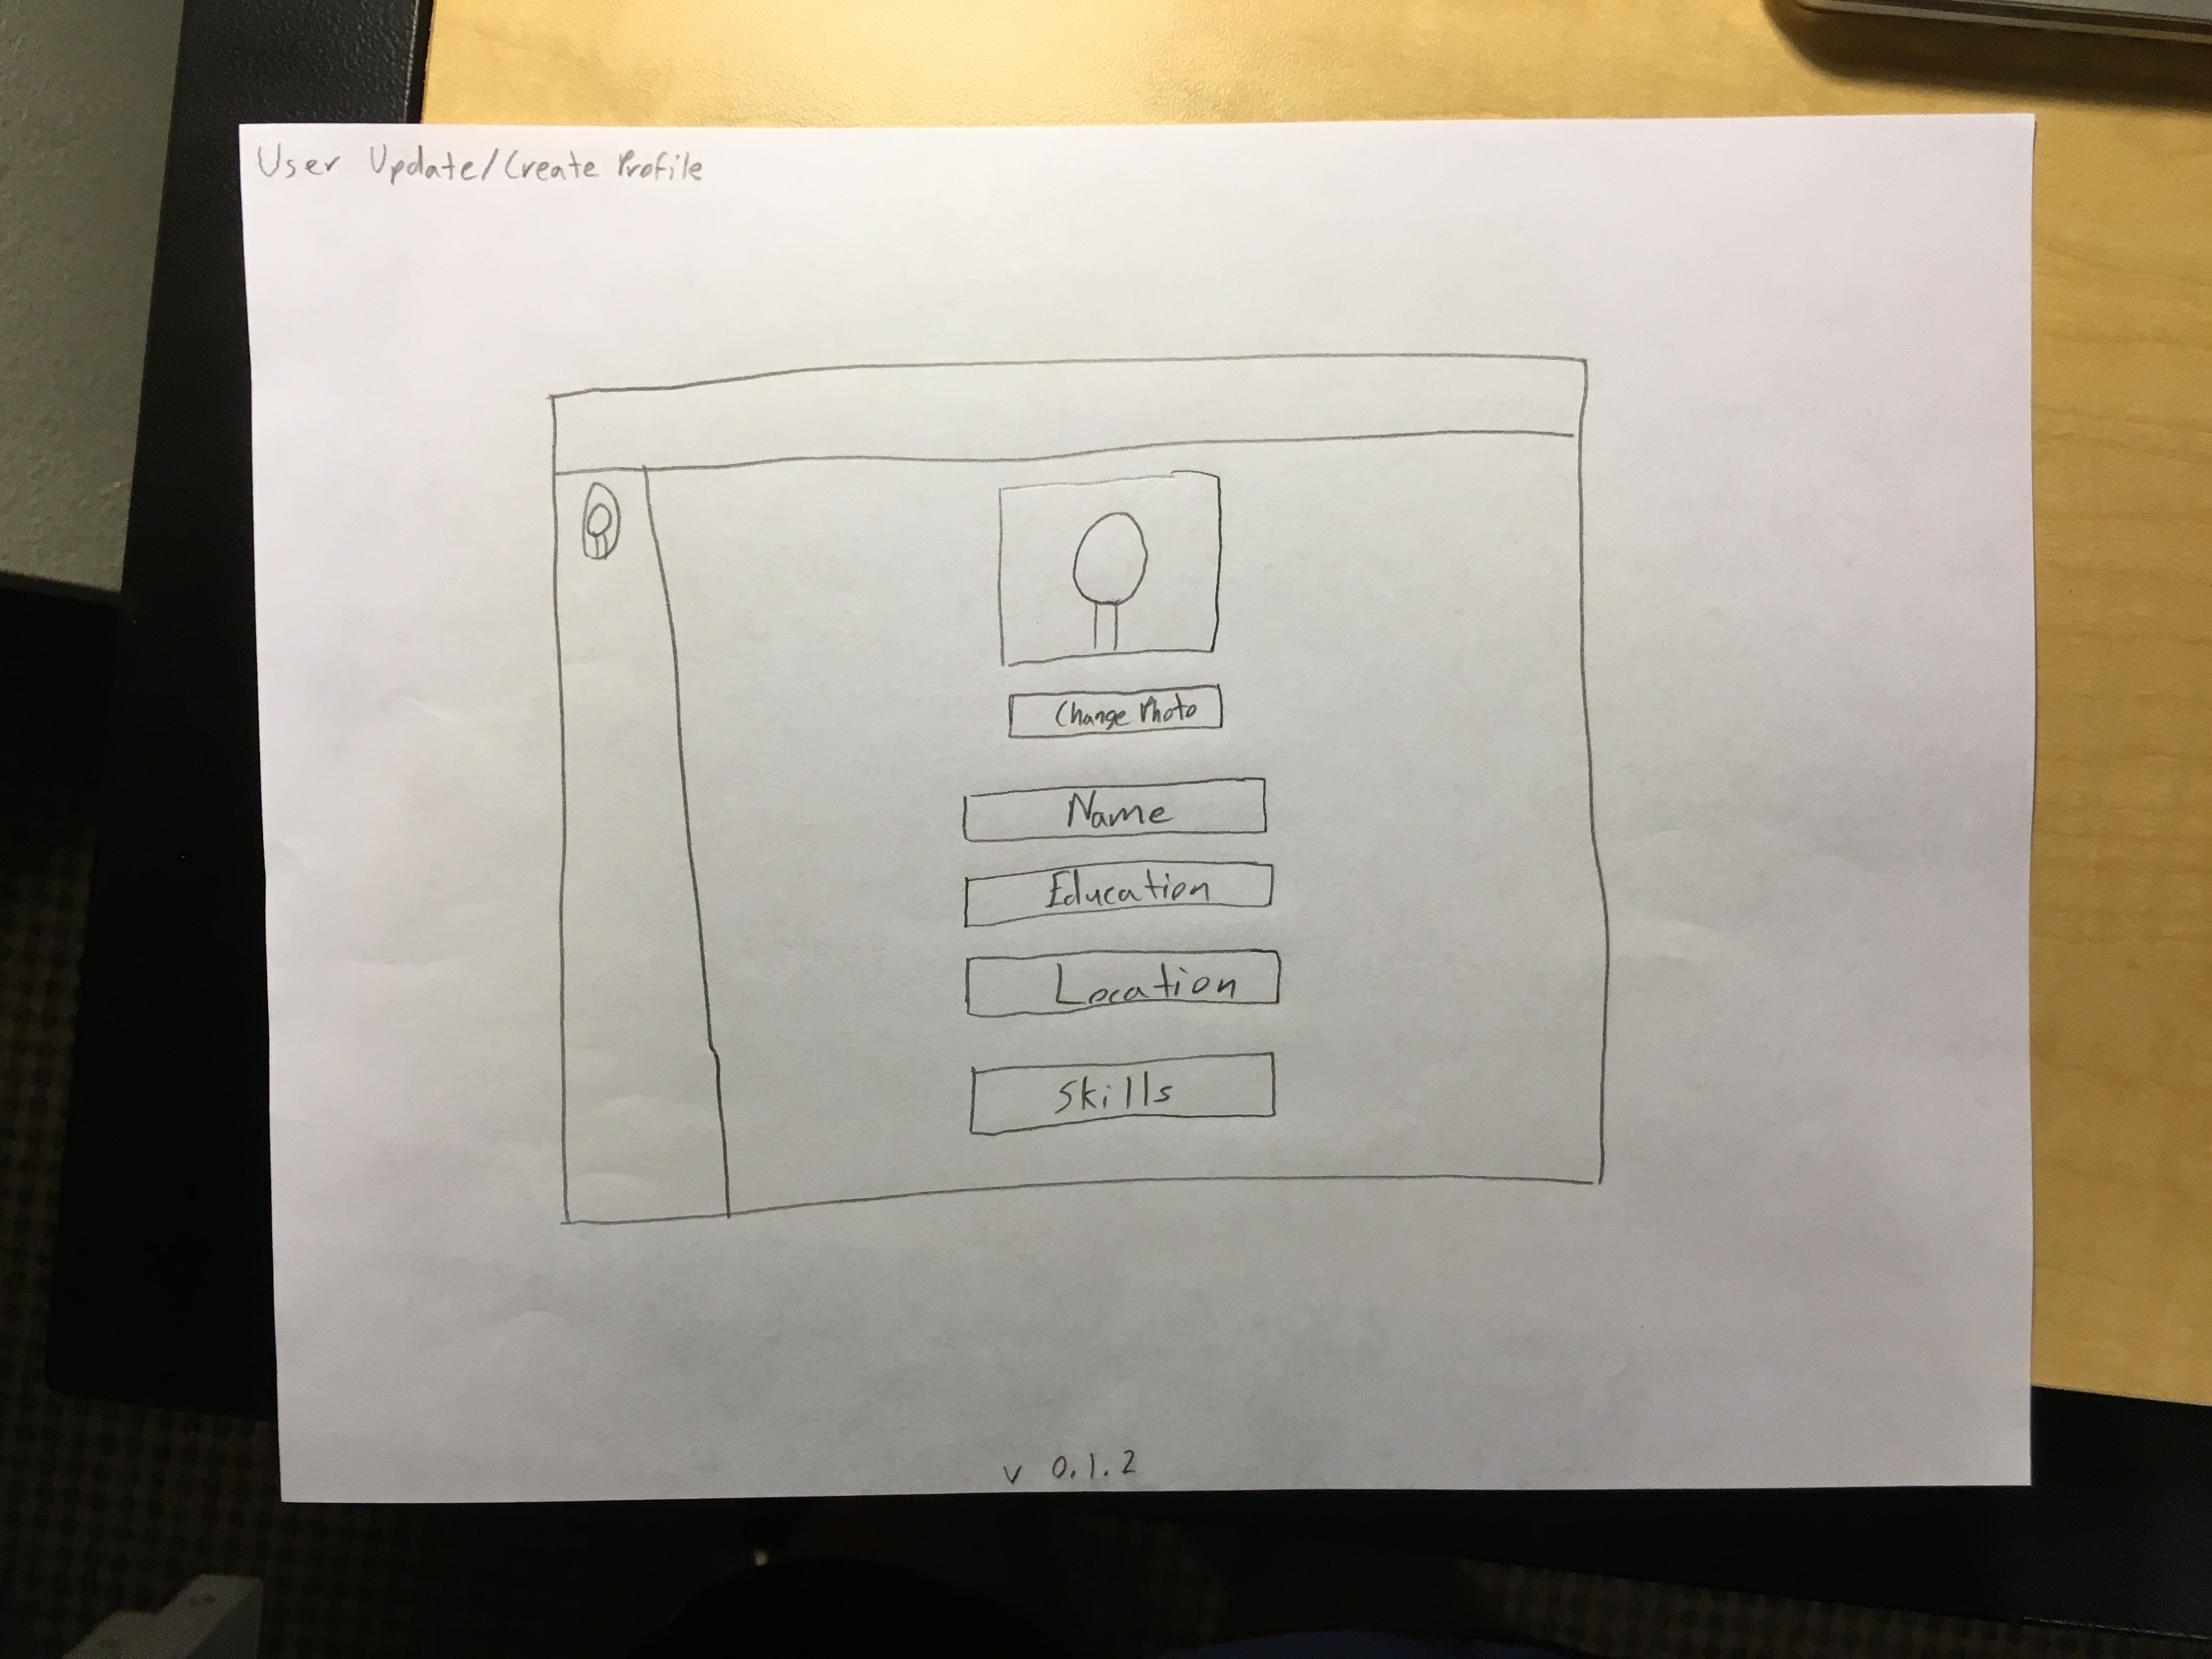 User Update/Create Profile
Change Photo
Name
Education
Location
Skills
v 0.1.2